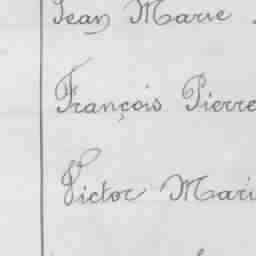 Jean Marie
François Pierre
Victor Mari